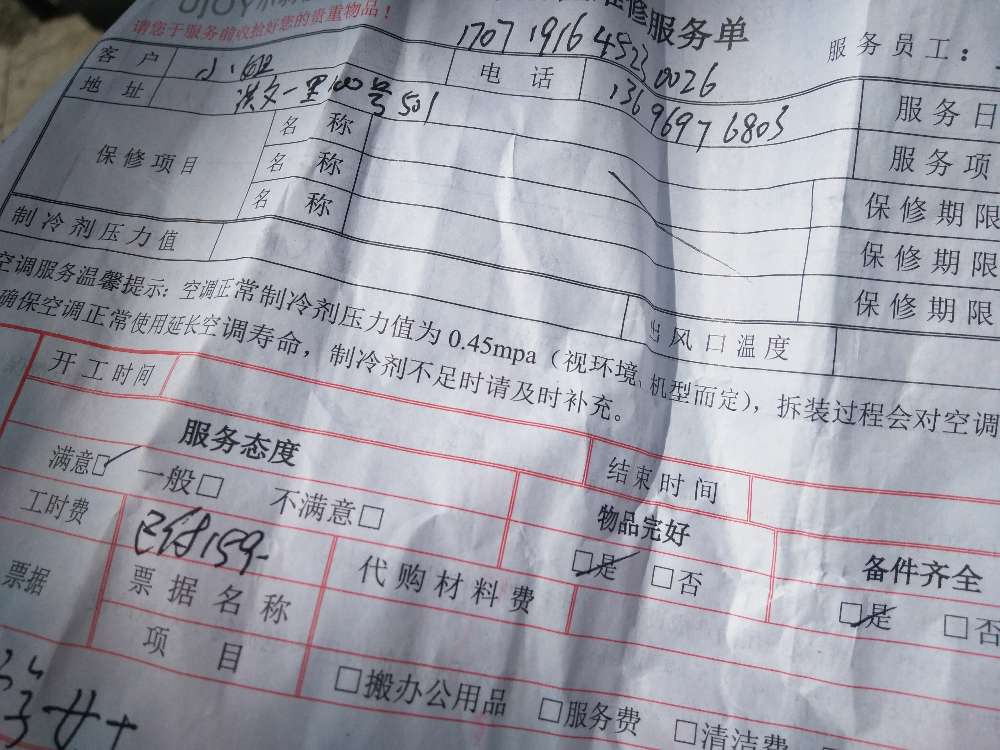 UJOY
维修服务单
请您于服务前收拾好您的贵重物品！
1707 1916 4523 0026
服务员工：
客户 小姐 电话 13696976803
服务日
地址 洪文一里100号501
服务项
保修项目 名称 保修期限
名称 保修期限
名称 保修期限
制冷剂压力值 出风口温度
空调服务温馨提示：空调正常制冷剂压力值为 0.45mpa（视环境、机型而定），拆装过程会对空调
确保空调正常使用延长空调寿命，制冷剂不足时请及时补充。
开工时间 结束时间
服务态度 物品完好 备件齐全
满意□✓ 一般□ 不满意□ □是 □否 □是 □否
工时费 已付159-
代购材料费
票据 票据名称
项目
□搬办公用品 □服务费 □清洁费